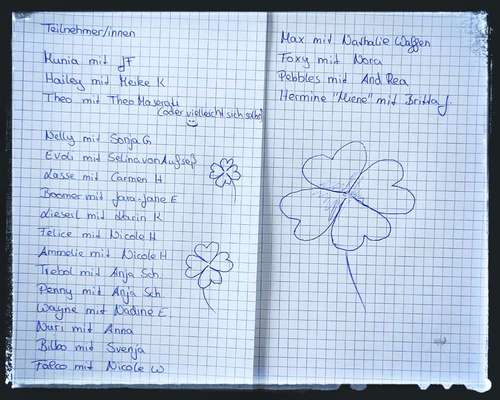 Teilnehmer/innen
Munia mit JF
Hailey mit Meike K
Theo mit Theo Maserati
(oder vielleicht sich selbst
Nelly mit Sonja G
Evoli mit Selina von Aufseß
Lasse mit Carmen H
Boomer mit Jara-Jane E
Lieserl mit Karin K
Felice mit Nicole H
Ammelie mit Nicole H
Trebol mit Anja Sch.
Penny mit Anja Sch.
Wayne mit Nadine E.
Nuri mit Anna
Bilbo mit Svenja
Falco mit Nicole W
Max mit Nathalie Waffen
Foxy mit Nora
Pebbles mit And Rea
Hermine "Miene" mit Britta J.